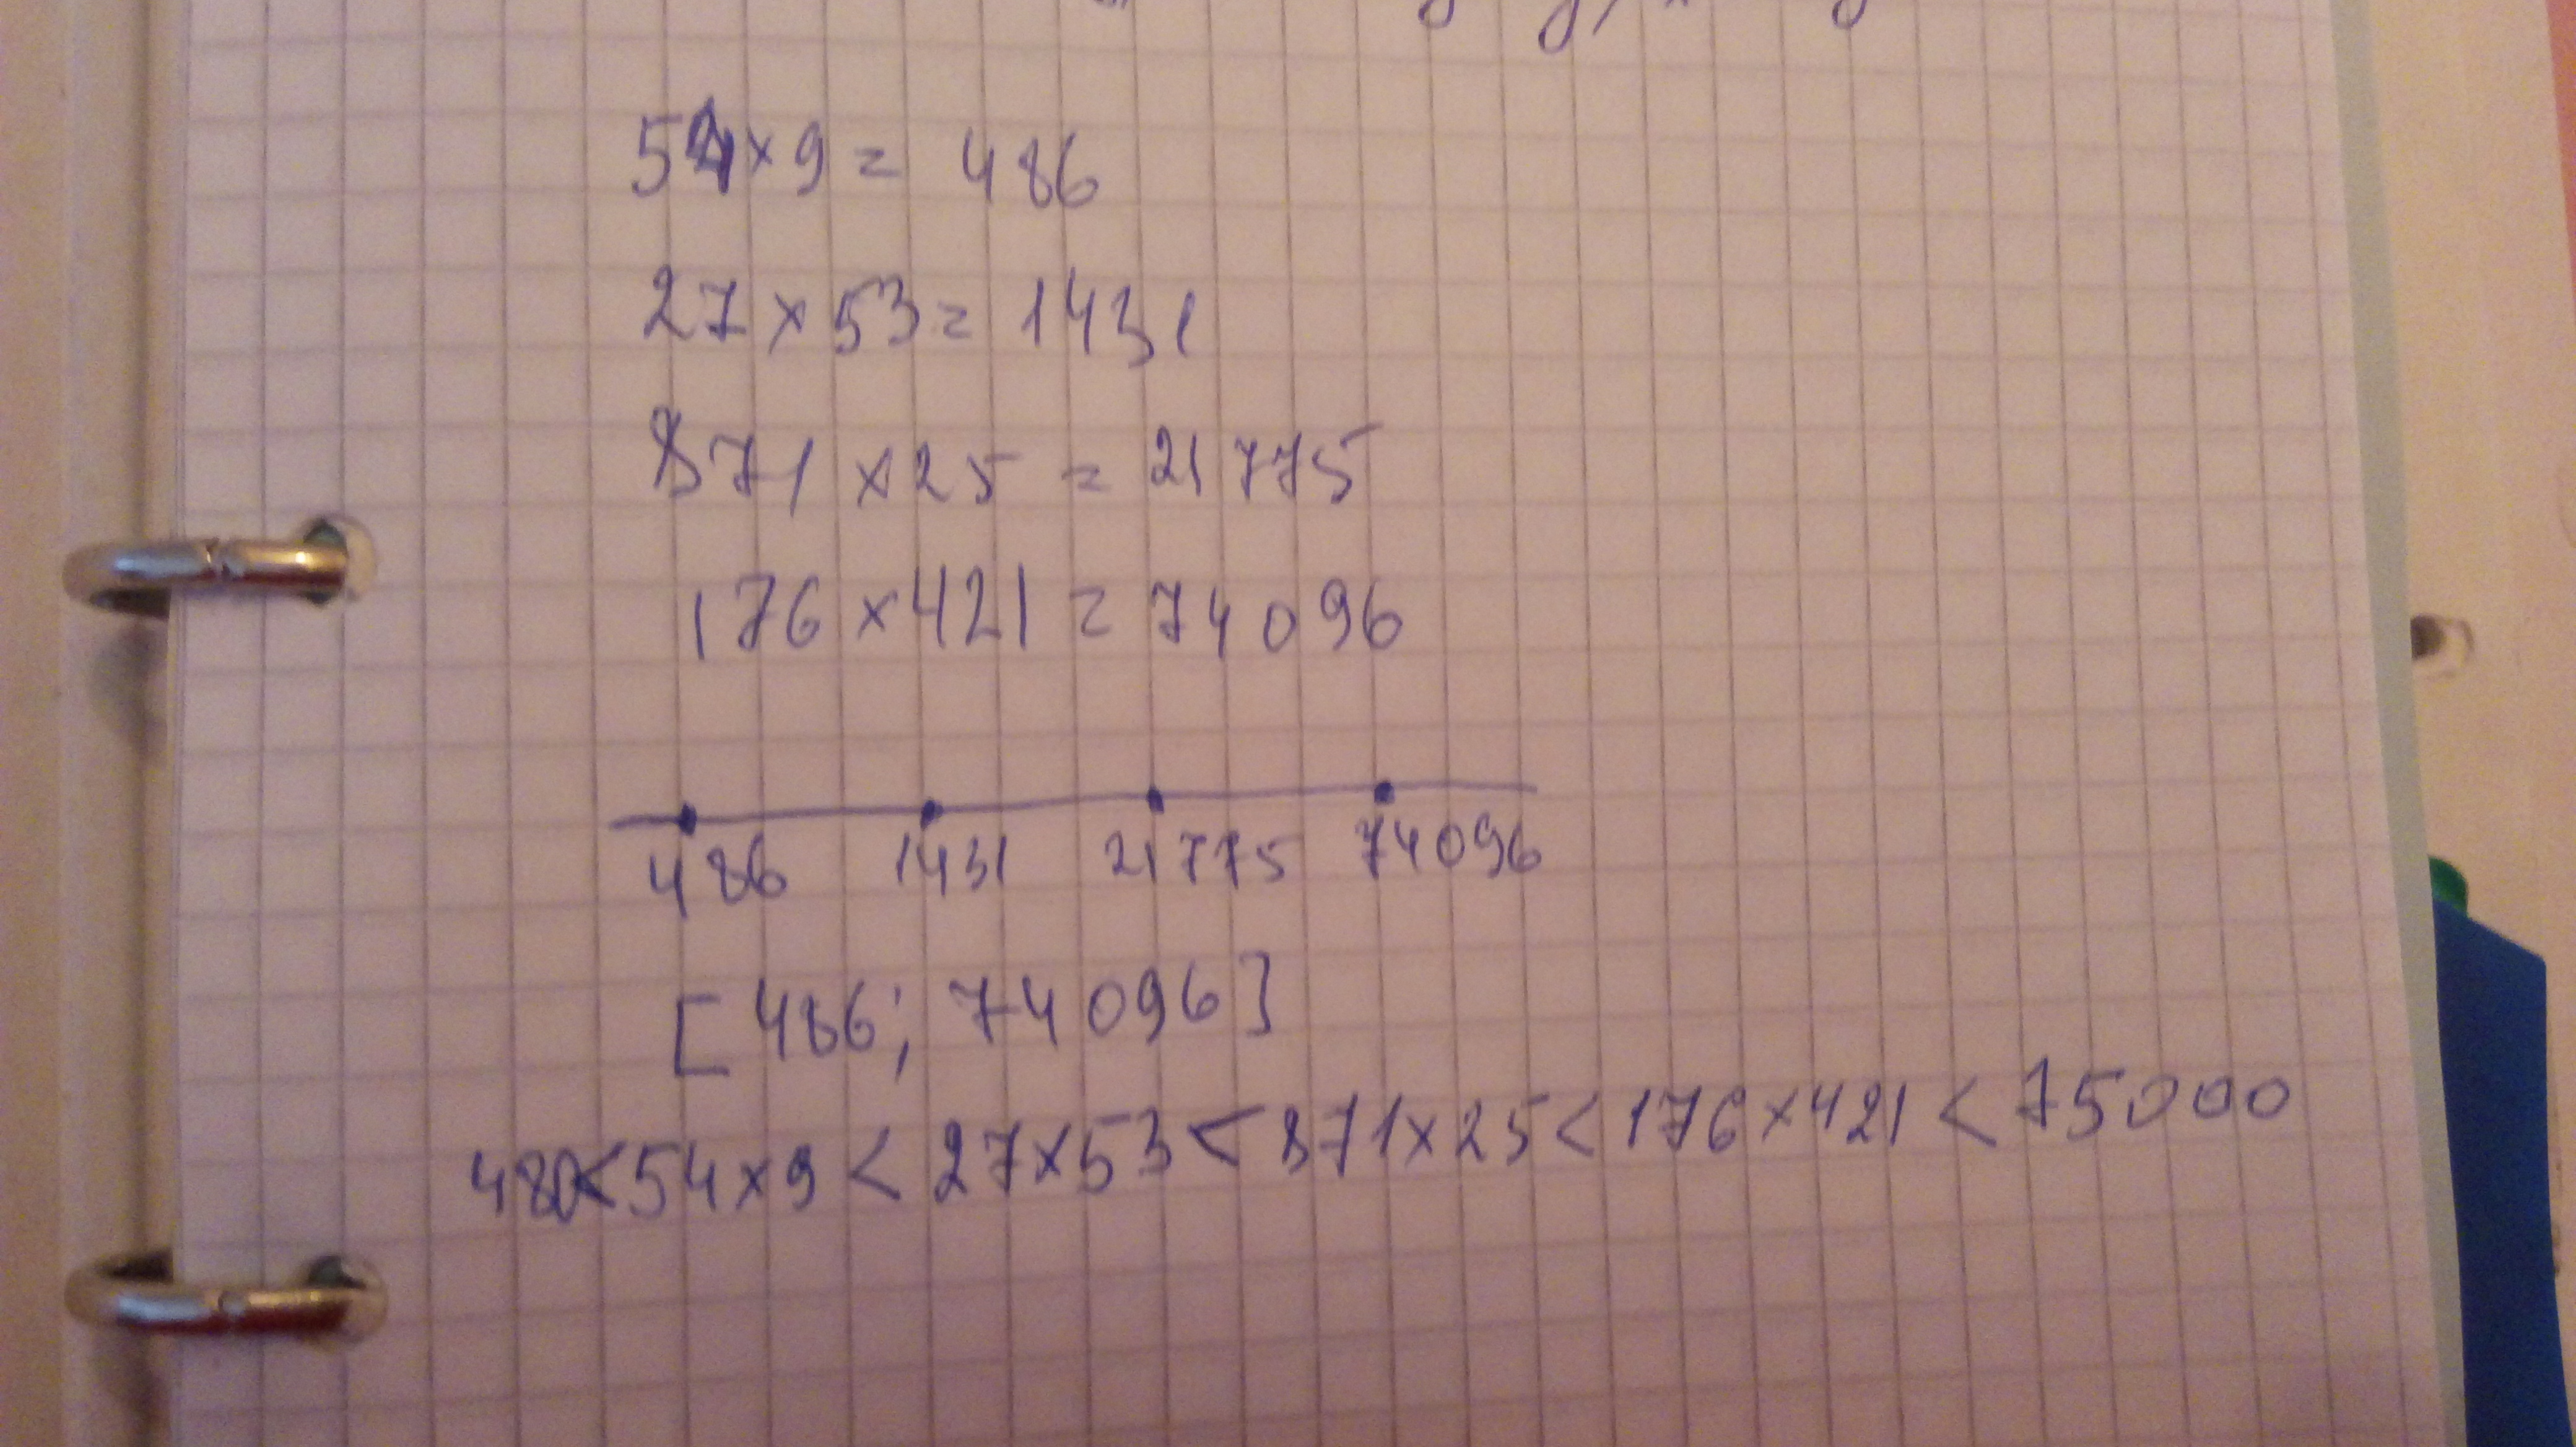 54 × 9 = 486
27 × 53 = 1431
871 × 25 = 21 775
176 × 421 = 74 096
486 1431 21 775 74 096
[ 486 ; 74 096 ]
480 < 54 × 9 < 27 × 53 < 871 × 25 < 176 × 421 < 75 000